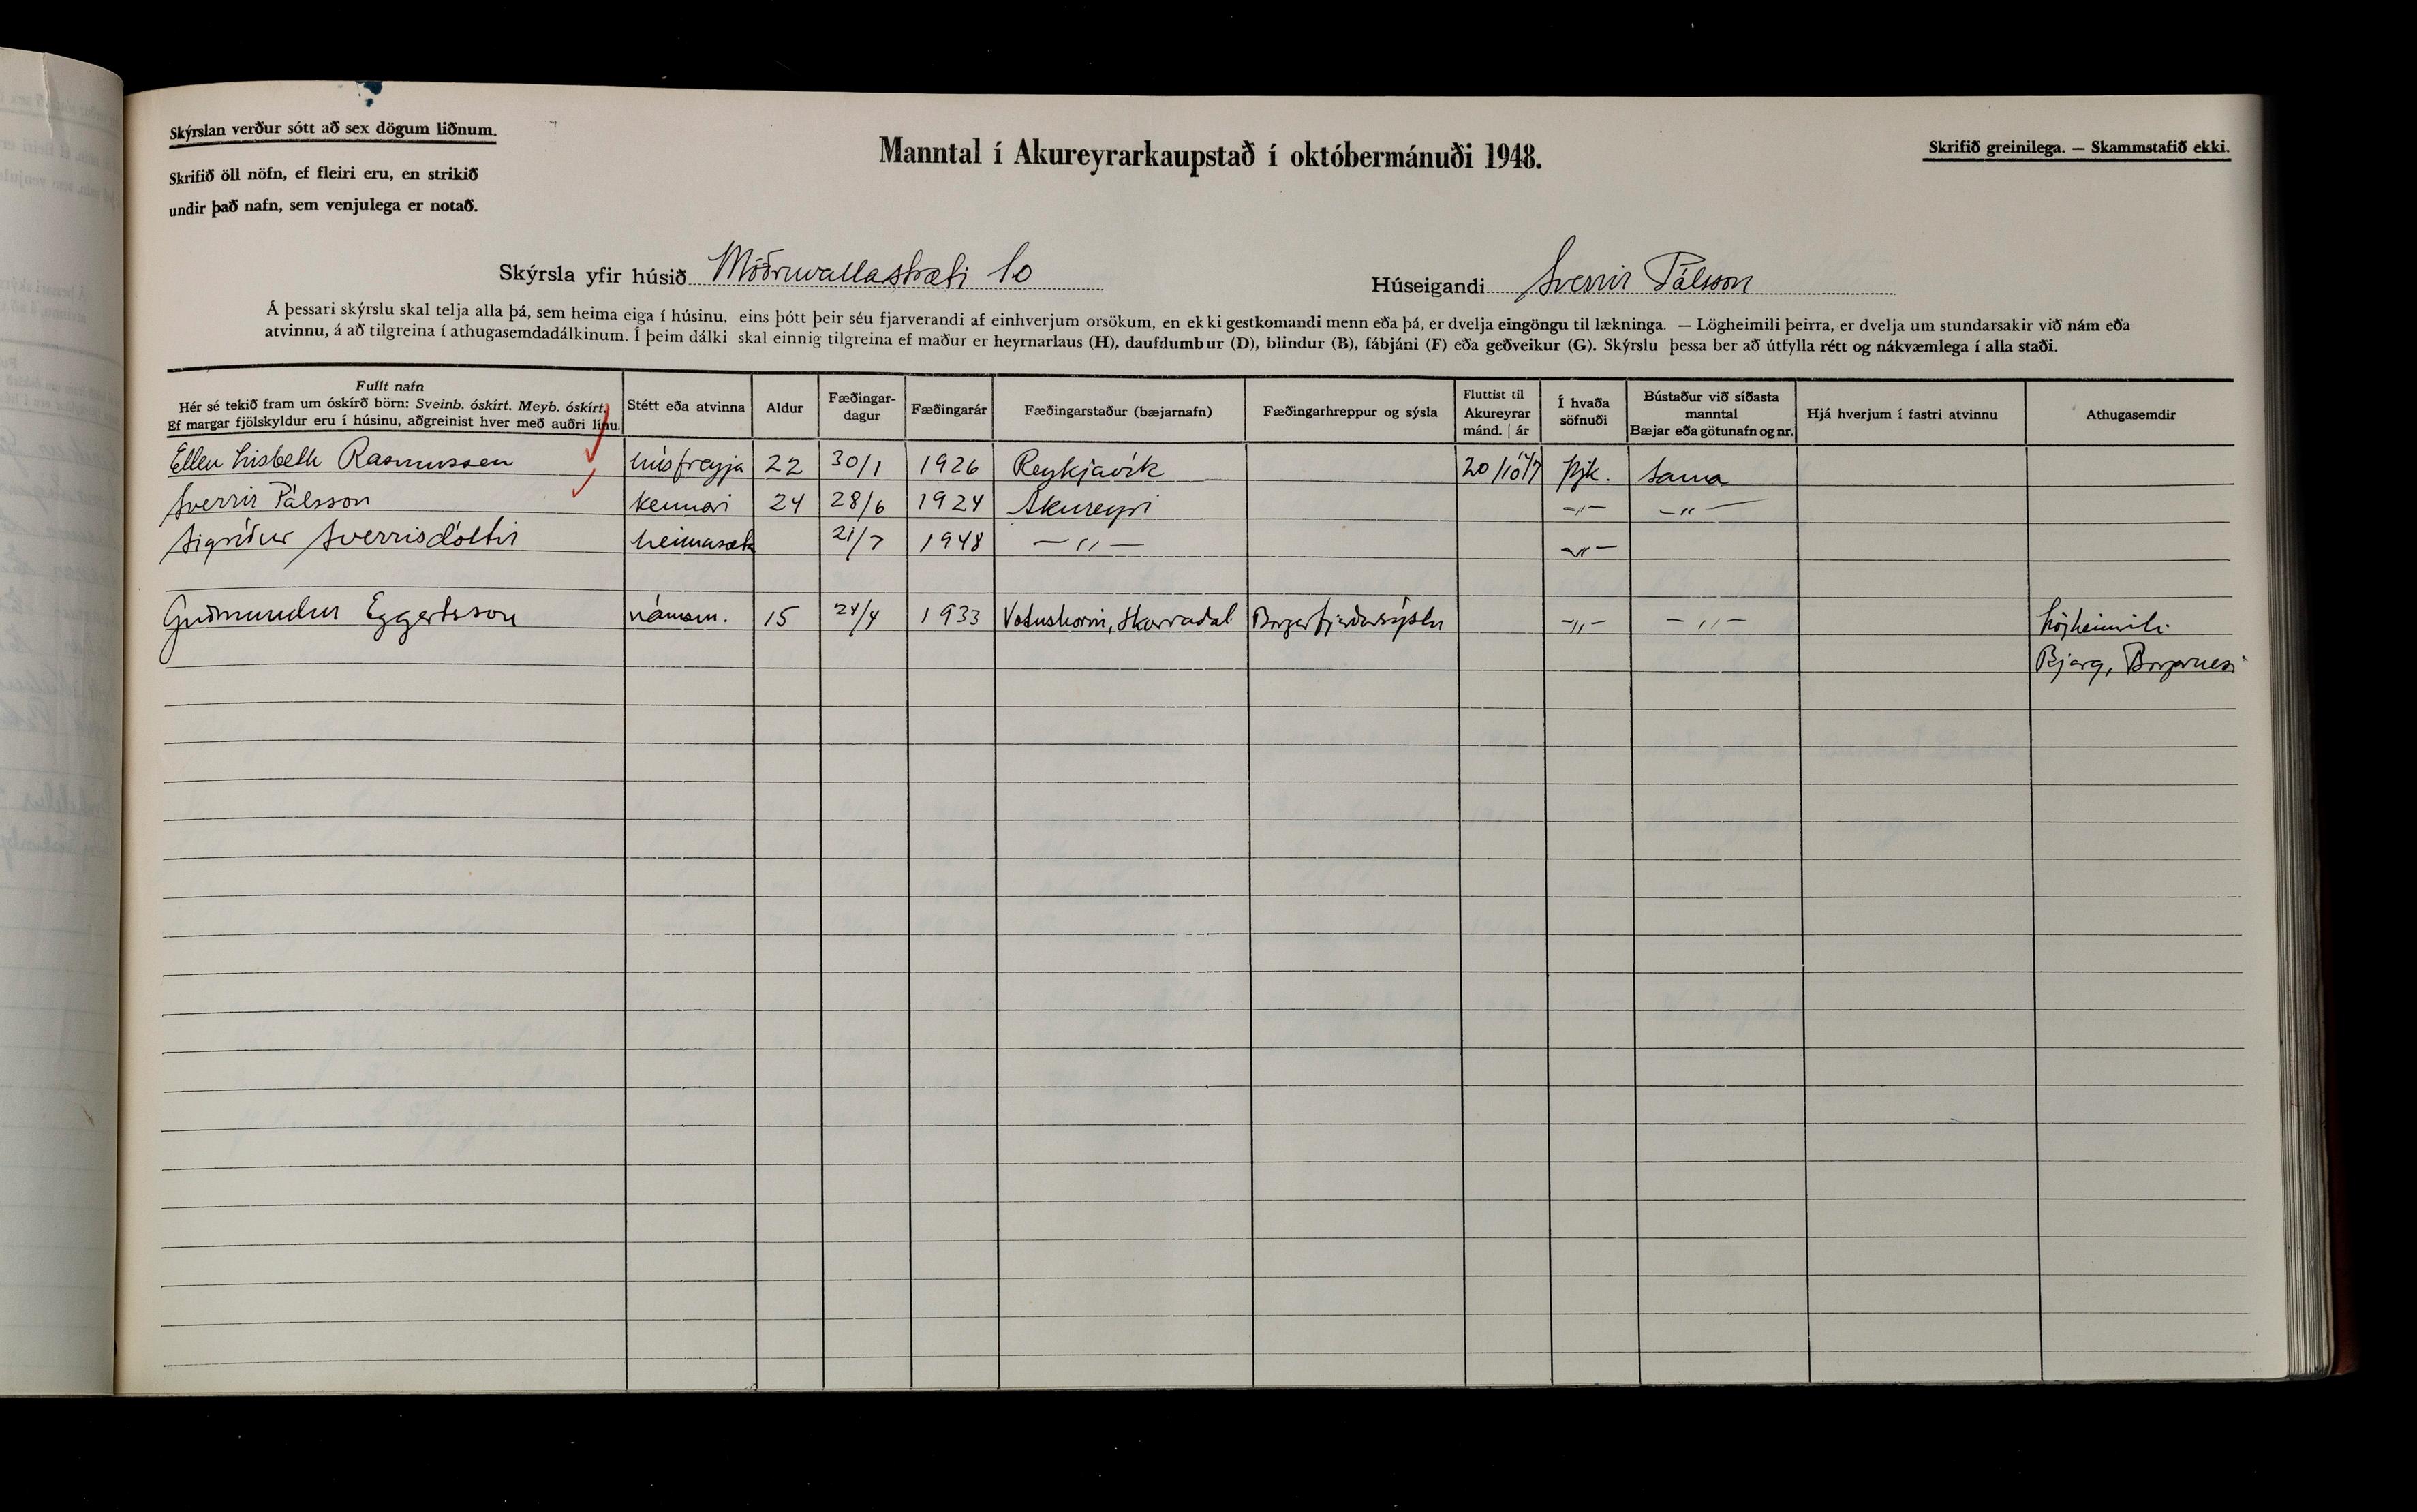 Skýrslan verður sótt að sex dögum liðnum.
Skrifið öll nöfn, ef fleiri eru, en strikið
undir það nafn, sem venjulega er notað.
Manntal í Akureyrarkaupstað í októbermánuði 1948.
Skrifið greinilega. — Skammstafið ekki.
Skýrsla yfir húsið Möðruvallastræti 10
Húseigandi Sverrir Pálsson
Á þessari skýrslu skal telja alla þá, sem heima eiga í húsinu, eins þótt þeir séu fjarverandi af einhverjum orsökum, en ekki gestkomandi menn eða þá, er dvelja eingöngu til lækninga. — Lögheimili þeirra, er dvelja um stundarsakir við nám eða
atvinnu, á að tilgreina í athugasemdadálkinum. Í þeim dálki skal einnig tilgreina ef maður er heyrnarlaus (H), daufdumbur (D), blindur (B), fábjáni (F) eða geðveikur (G). Skýrslu þessa ber að útfylla rétt og nákvæmlega í alla staði.
Fullt nafn
Hér sé tekið fram um óskírð börn: Sveinb. óskírt. Meyb. óskírt.
Ef margar fjölskyldur eru í húsinu, aðgreinist hver með auðri línu.
Stétt eða atvinna
Aldur
Fæðingar-
dagur
Fæðingarár
Fæðingarstaður (bæjarnafn)
Fæðingarhreppur og sýsla
Fluttist til
Akureyrar
mánd. | ár
Í hvaða
söfnuði
Bústaður við síðasta
manntal
Bæjar eða götunafn og nr.
Hjá hverjum í fastri atvinnu
Athugasemdir
Ellen Lisbeth Rasmussen húsfreyja 22 30/1 1926 Reykjavík 20/10 47 Þjk. Sama
Sverrir Pálsson kennari 24 28/6 1924 Akureyri —"— —"—
Sigríður Sverrisdóttir heimasæta 21/7 1948 —"— —"—
Guðmundur Eggertsson námsm. 15 24/4 1933 Vatnshorni, Skorradal Borgarfjarðarsýslu —"— —"— Lögheimili:
Bjarg, Borgarnesi